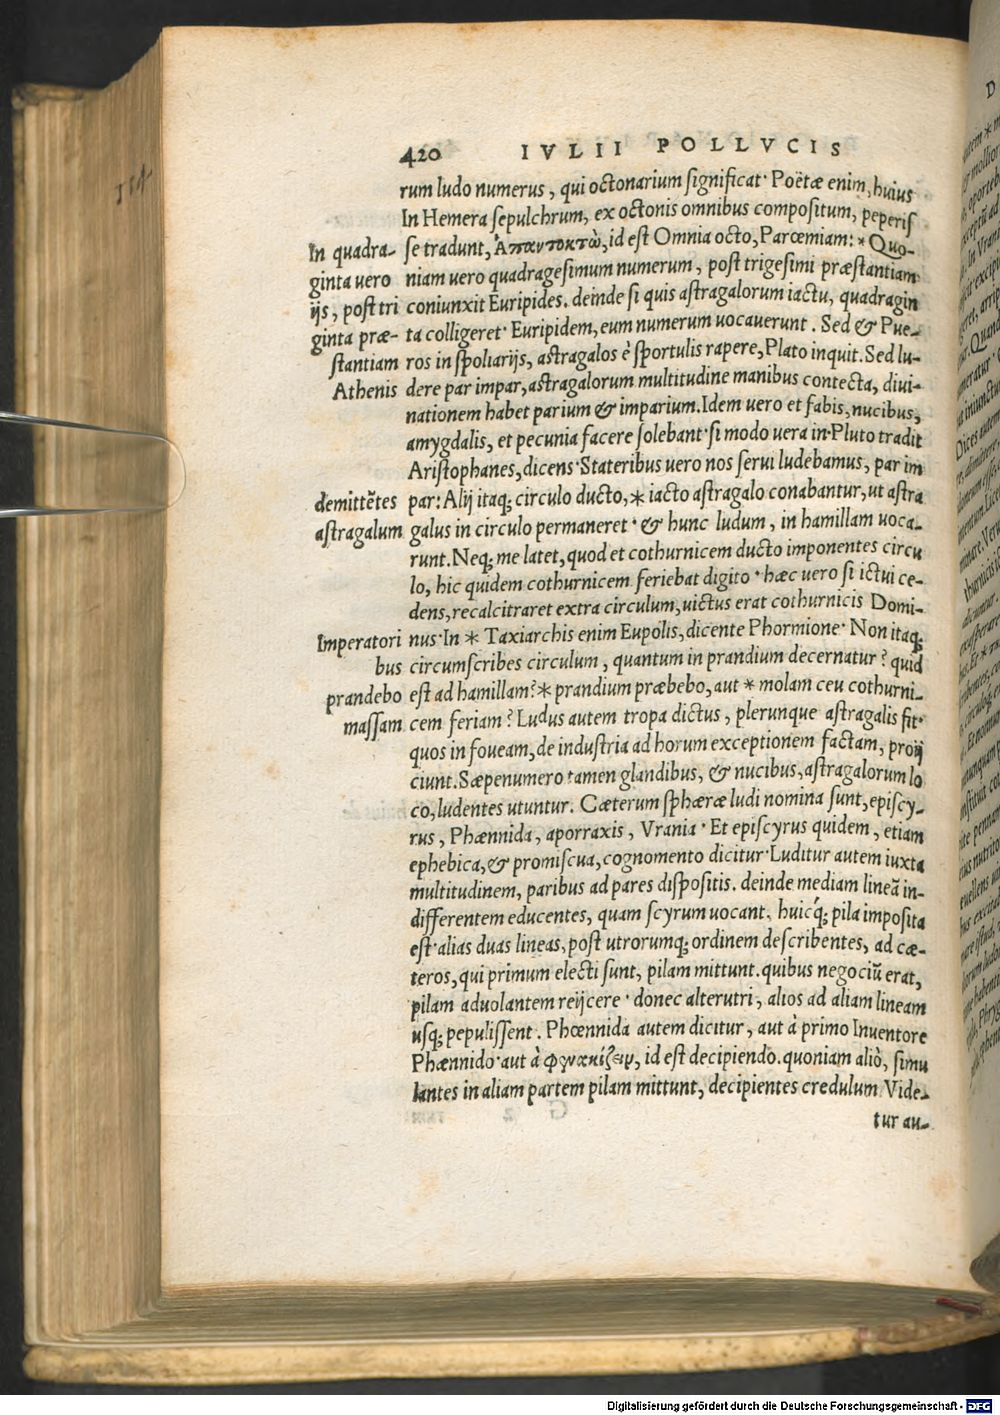 420 IVLII POLLVCIS
rum ludo numerus, qui octonarium significat· Poëtæ enim, huius
In Hemera sepulchrum, ex octonis omnibus compositum, peperis
se tradunt, Ἁπαντοκτὼ, id est Omnia octo, Parœmiam: *Quo-
niam uero quadragesimum numerum, post trigesimi præstantiam
coniunxit Euripides. deinde si quis astragalorum iactu, quadragin
ta colligeret· Euripidem, eum numerum uocauerunt. Sed & Pue-
ros in spoliarijs, astragalos è sportulis rapere, Plato inquit. Sed lu-
dere par impar, astragalorum multitudine manibus contecta, diui-
nationem habet parium & imparium. Idem uero et fabis, nucibus,
amygdalis, et pecunia facere solebant· si modo uera in·Pluto tradit
Aristophanes, dicens· Stateribus uero nos serui ludebamus, par im
par: Alij itaq; circulo ducto, * iacto astragalo conabantur, ut astra
galus in circulo permaneret· & hunc ludum, in hamillam uoca-
runt. Neq; me latet, quod et cothurnicem ducto imponentes circu
lo, hic quidem cothurnicem feriebat digito· hæc uero si ictui ce-
dens, recalcitraret extra circulum, uictus erat cothurnicis Domi-
nus·In * Taxiarchis enim Eupolis, dicente Phormione· Non itaq;
circumscribes circulum, quantum in prandium decernatur? quid
est ad hamillam? * prandium præbebo, aut * molam ceu cothurni-
cem feriam? Ludus autem tropa dictus, plerunque astragalis fit·
quos in foueam, de industria ad horum exceptionem factam, proij
ciunt. Sæpenumero tamen glandibus, & nucibus, astragalorum lo
co, ludentes utuntur. Cæterum sphæræ ludi nomina sunt, episcy-
rus, Phænnida, aporraxis, Vrania· Et episcyrus quidem, etiam
ephebica, & promiscua, cognomento dicitur· Luditur autem iuxta
multitudinem, paribus ad pares dispositis. deinde mediam lineã in-
differentem educentes, quam scyrum uocant, huicq́; pila imposita
est· alias duas lineas, post utrorumq; ordinem describentes, ad cæ-
teros, qui primum electi sunt, pilam mittunt. quibus negociũ erat,
pilam aduolantem reijcere· donec alterutri, alios ad aliam lineam
usq; pepulissent. Phœnnida autem dicitur, aut à primo Inuentore
Phænnido· aut à φηνακίζειν, id est decipiendo. quoniam aliò, simu
lantes in aliam partem pilam mittunt, decipientes credulum Vide-
tur au-
In quadra-
ginta uero
ijs, post tri
ginta præ-
stantiam
Athenis
demittẽtes
astragalum
Imperatori
bus
prandebo
massam
114
Digitalisierung gefördert durch die Deutsche Forschungsgemeinschaft - DFG